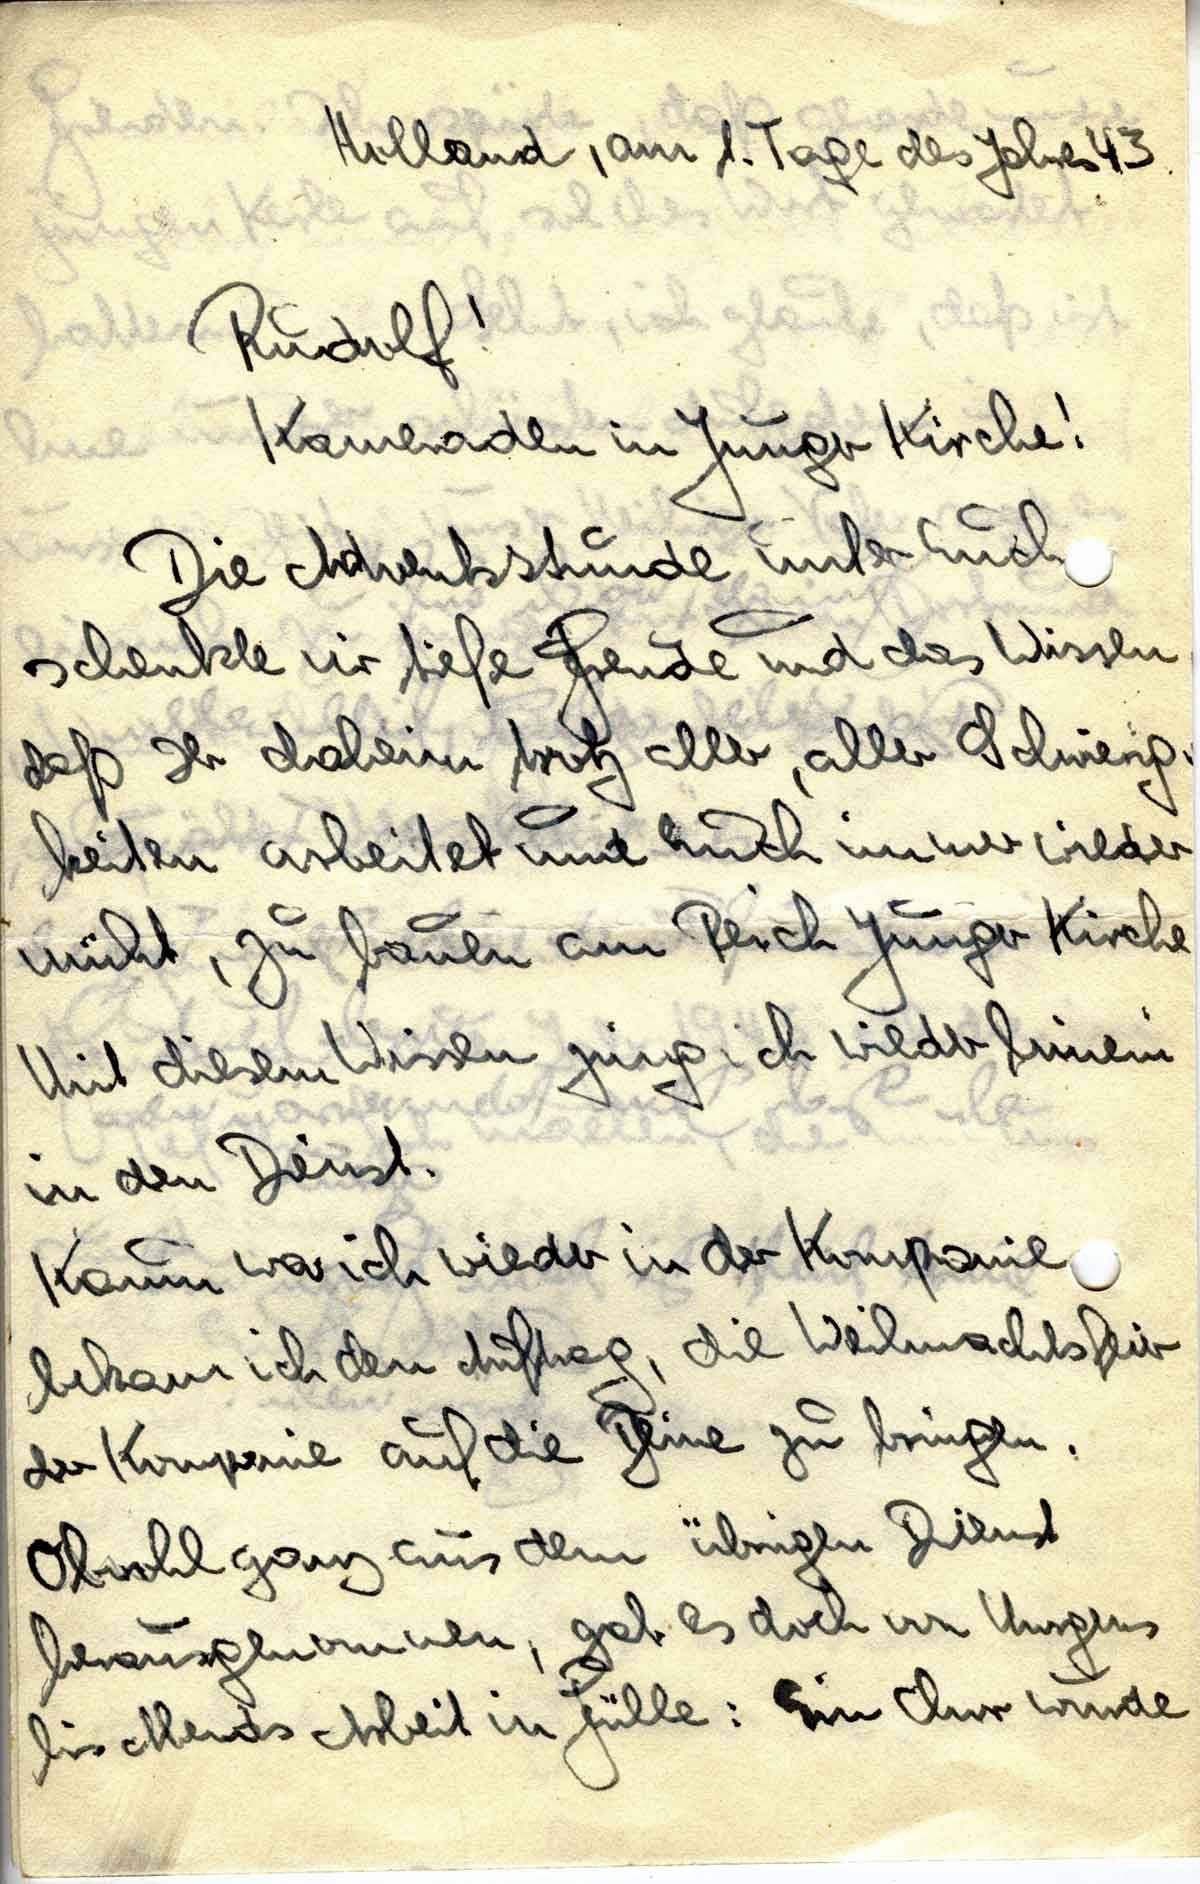 Holland, am 1. Tage des Jahres 43.
Rudolf!
Kameraden in Junger Kirche!
Die Adventsstunde unter Euch
schenkte mir tiefe Freude und das Wissen,
daß Ihr daheim trotz aller, aller Schwierig-
keiten arbeitet und Euch immer wieder
müht, zu bauen am Reich Junger Kirche
Mit diesem Wissen ging ich wieder hinein
in den Dienst.
Kaum war ich wieder in der Kompanie
bekam ich den Auftrag, die Weihnachtsfeier
der Kompanie auf die Beine zu bringen.
Obwohl ganz aus dem übrigen Dienst
herausgenommen, gab es doch von Morgens
bis Abends Arbeit in Fülle: Ein Chor wurde